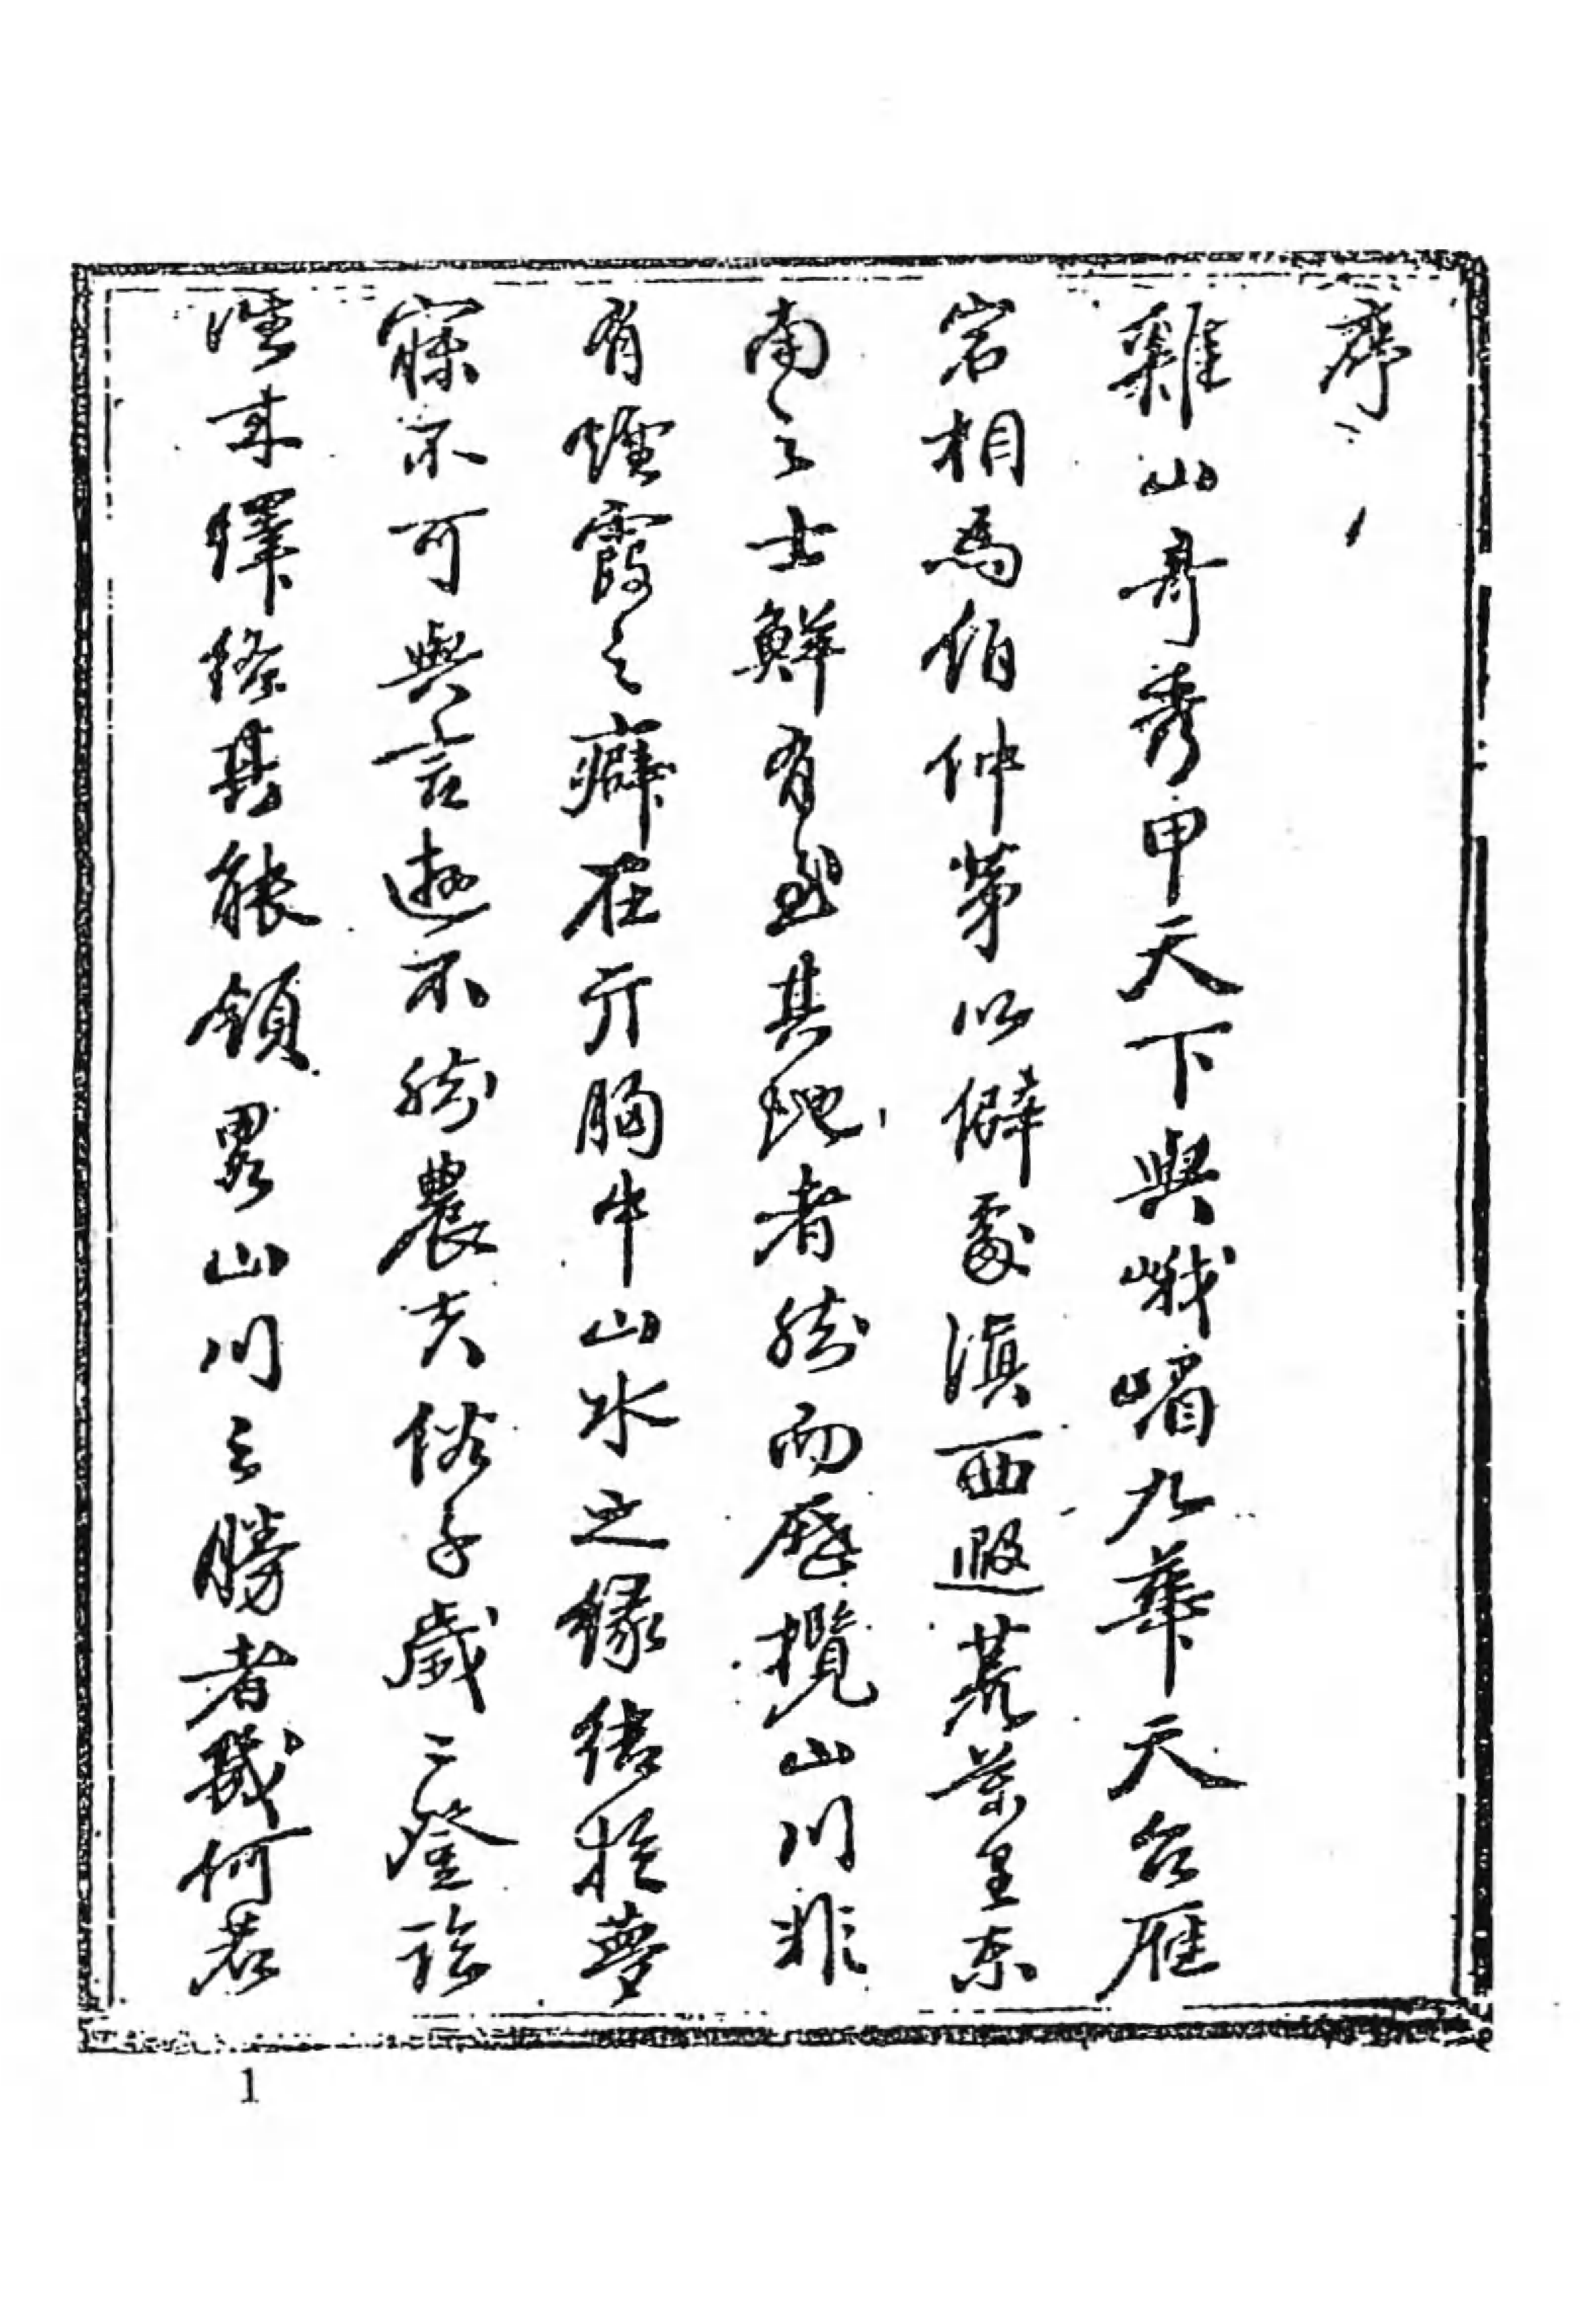 序
雞山奇秀甲天下與峨嵋九華天台雁
宕相為伯仲第以僻處滇西遐荒萬里東
南之士鮮有至其地者然而歷攬山川非
有煙霞之癖在于胸中山水之緣結於夢
寐不可與言遊不然農夫俗子歲二登臨
往來繹絡其能領畧山川之勝者幾何若
1